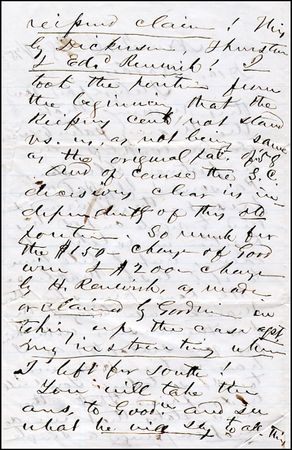 reissued claim! This
by Dickerson, Thurston
& Edwd Renwick! I
took the position from
the beginning that the
Keeping could not stand
vs. us, as not being same
as the original pat.
And of course the S.C.
decision clear is in-
dependently of this
position. So much for
the $150 - charge of Good
win & $200 - charge
by H. Renwick, as made
or claimed by Goodwin in
the case agst
my instructing when
I left for South!
You will take the
ans. to Goodn and see
what he will say to all this